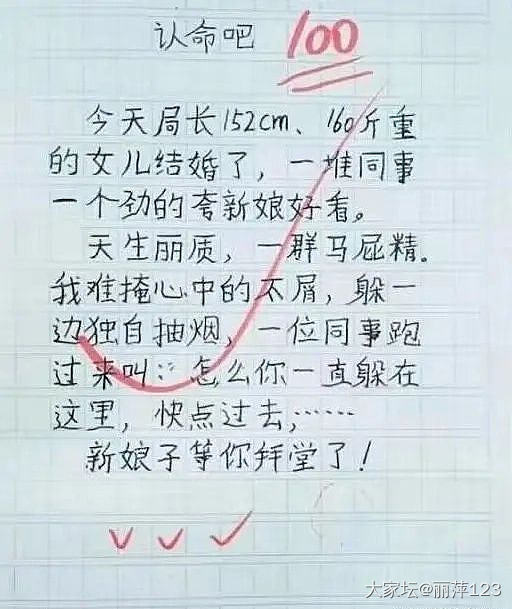 认命吧 100
今天局长152cm、160斤重
的女儿结婚了，一堆同事
一个劲的夸新娘好看。
天生丽质，一群马屁精。
我难掩心中的不屑，躲一
边独自抽烟，一位同事跑
过来叫：怎么你一直躲在
这里，快点过去，……
新娘子等你拜堂了！
大家坛@丽萍123